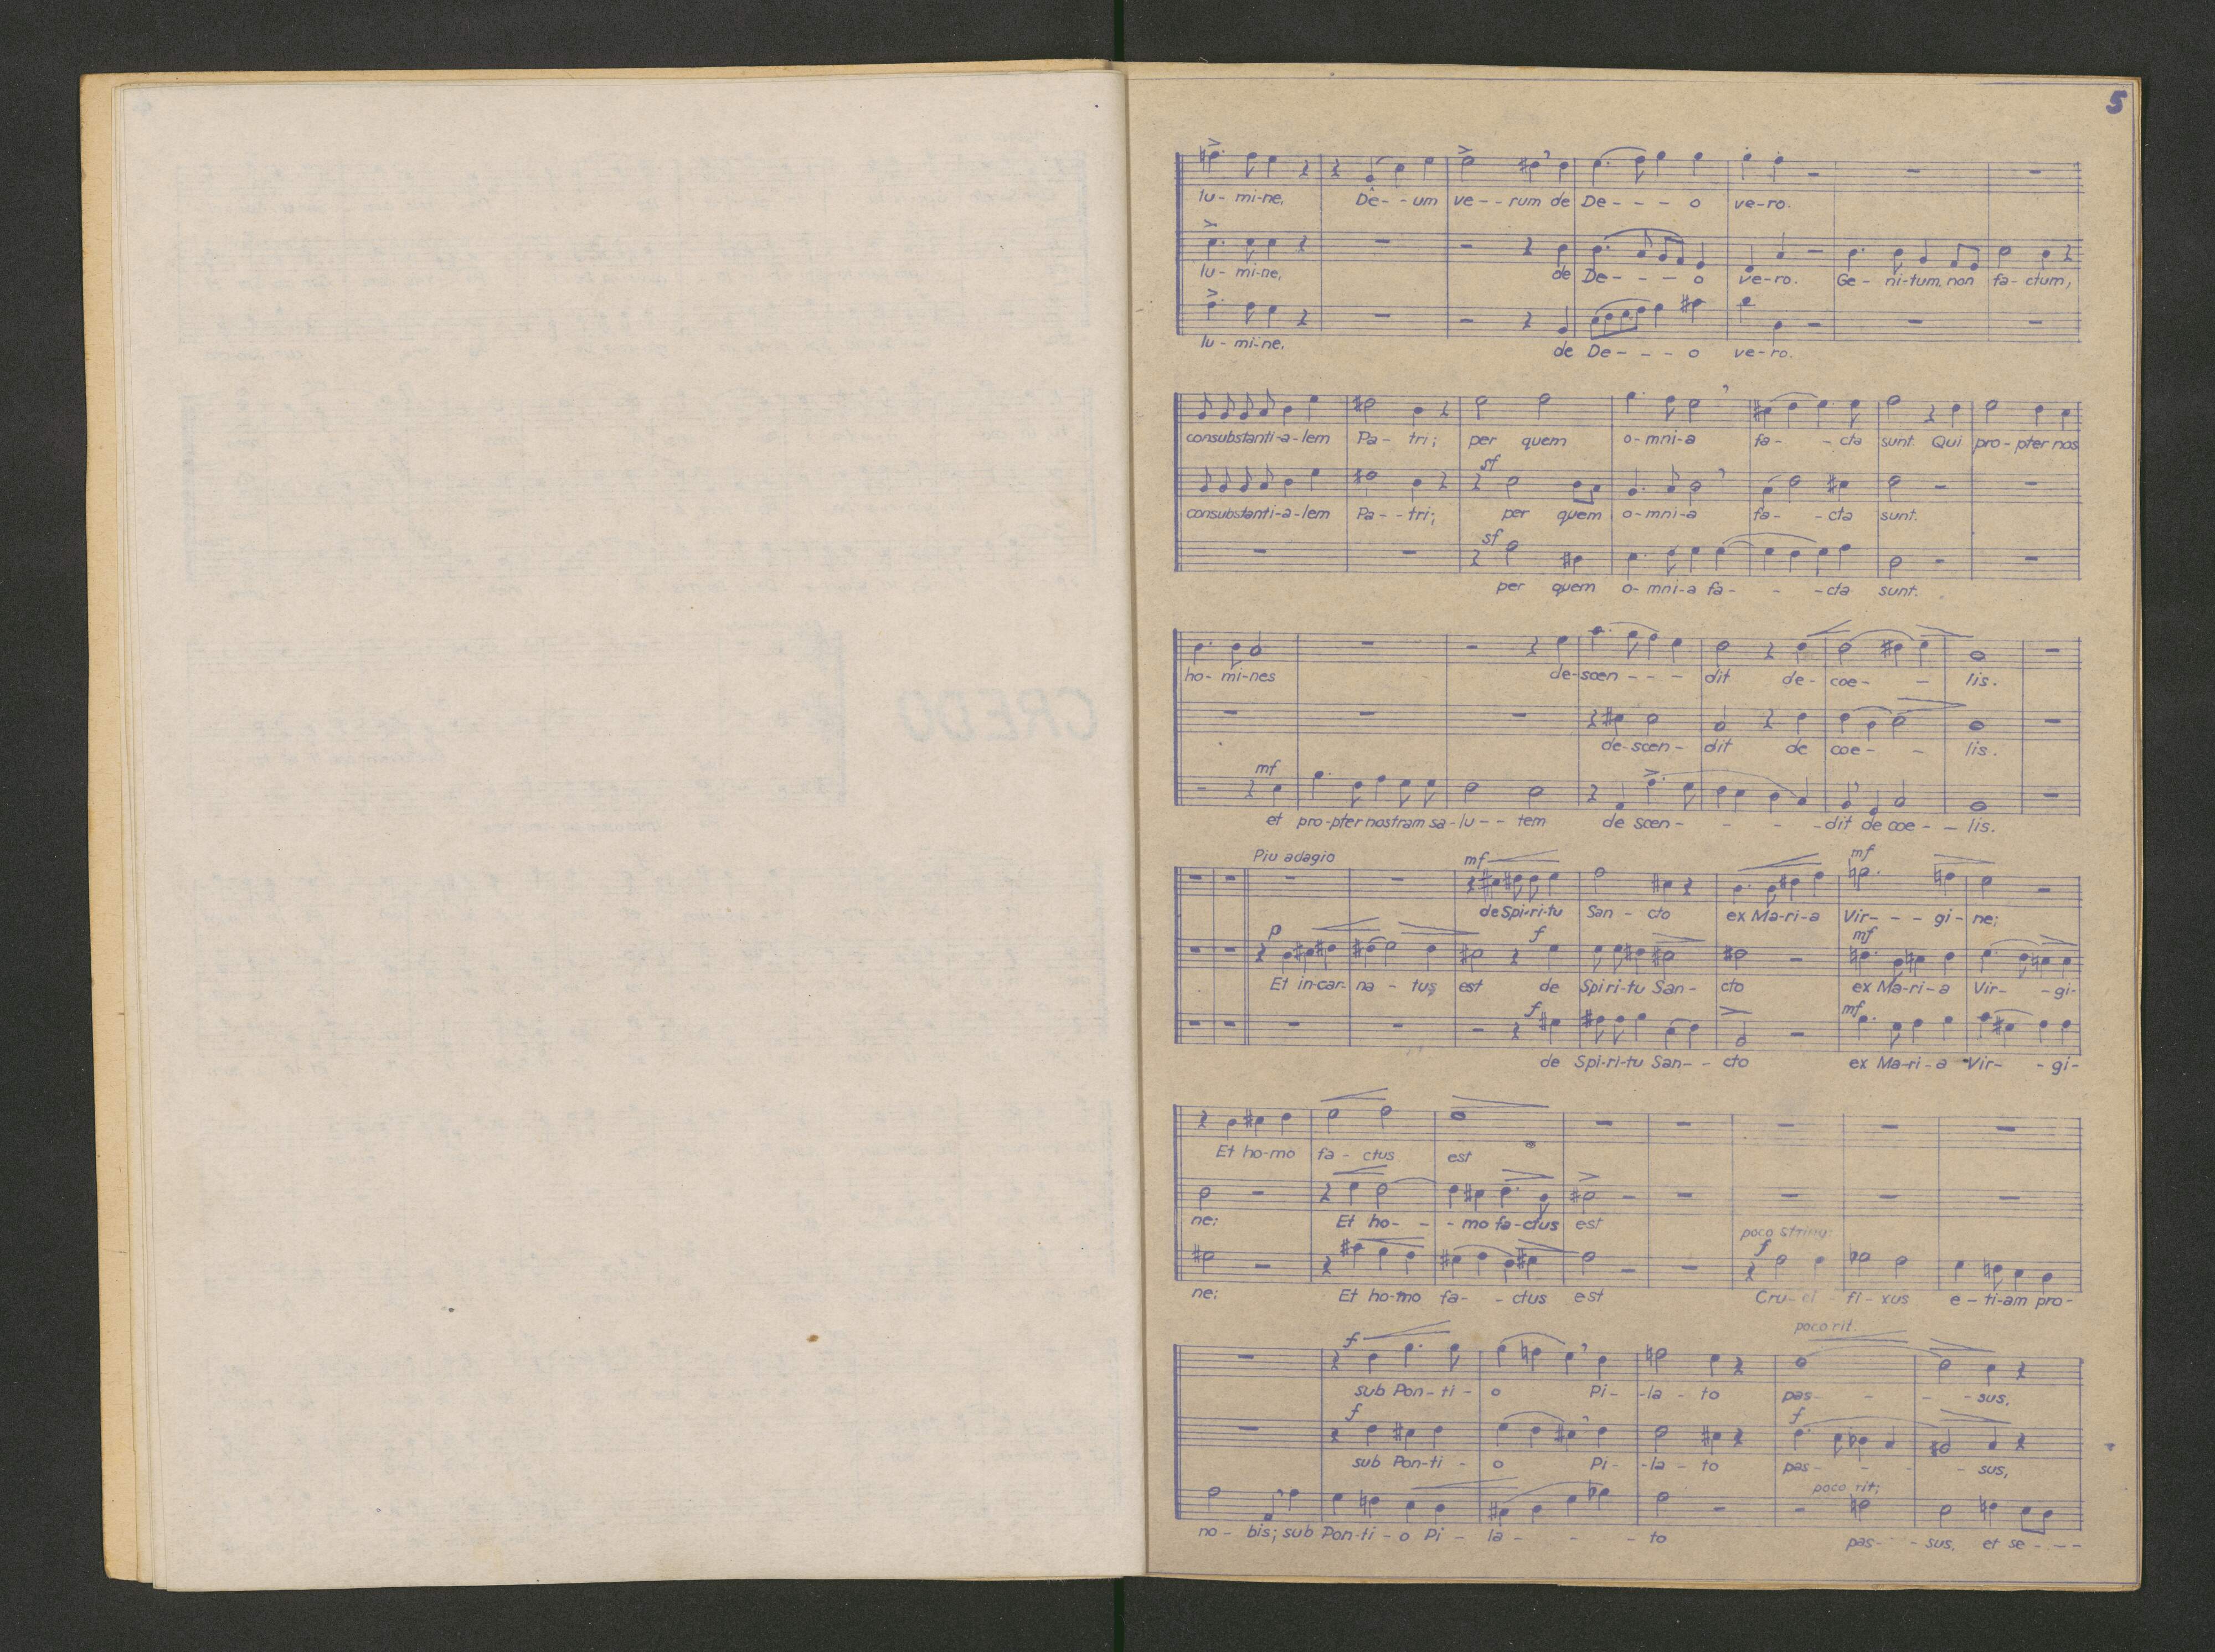 5
lu- mi-ne, Dê- - um ve- - rum de De- - - o ve-ro.
lu- mi-ne, de De- - - o ve-ro. Ge- ni-tum, non fa- ctum,
lu- mi-ne. de De- - - o ve-ro.
consubstanti-a-lem Pa- tri; per quem o-mni-a fa- - cta sunt. Qui pro-pter nos
sf
consubstanti-a-lem Pa- - tri; per quem o-mni-a fa- - cta sunt.
sf
per quem o-mni-a fa- - - cta sunt.
ho- mi-nes de-scen - - - dit de- coe- - lis.
de-scen- dit de coe- - lis.
mf
et pro-pter nostram sa-lu- - tem de scen- - - - dit de coe- - lis.
Piu adagio mf mf
de Spi-ri-tu San - cto ex Ma-ri-a Vir- - - gi- ne;
p f mf
Et in-car- na - tus est de Spiri-tu San- cto ex Ma-ri-a Vir- - gi-
f mf
de Spi-ri-tu San- - cto ex Ma-ri-a Vir- - gi-
Et ho-mo fa- ctus est
ne; Et ho- - - mo fa-ctus est
poco string:
f
ne; Et ho-mo fa- - ctus est Cru-ci - fi-xus e-ti-am pro-
poco rit.
f
sub Pon-ti- o Pi- -la- to pas- - - - sus,
f f
sub Pon-ti - o Pi- -la- to pas- - - - sus,
poco rit;
no- bis; sub Pon-ti-o Pi- la- - - to pas- - sus, et se- - -
CREDO